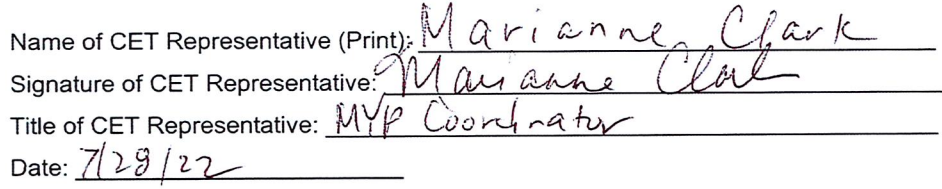 Name of CET Representative (Print): Marianne Clark
Signature of CET Representative: Marianne Clark
Title of CET Representative: MYP Coordinator
Date: 7/28/22